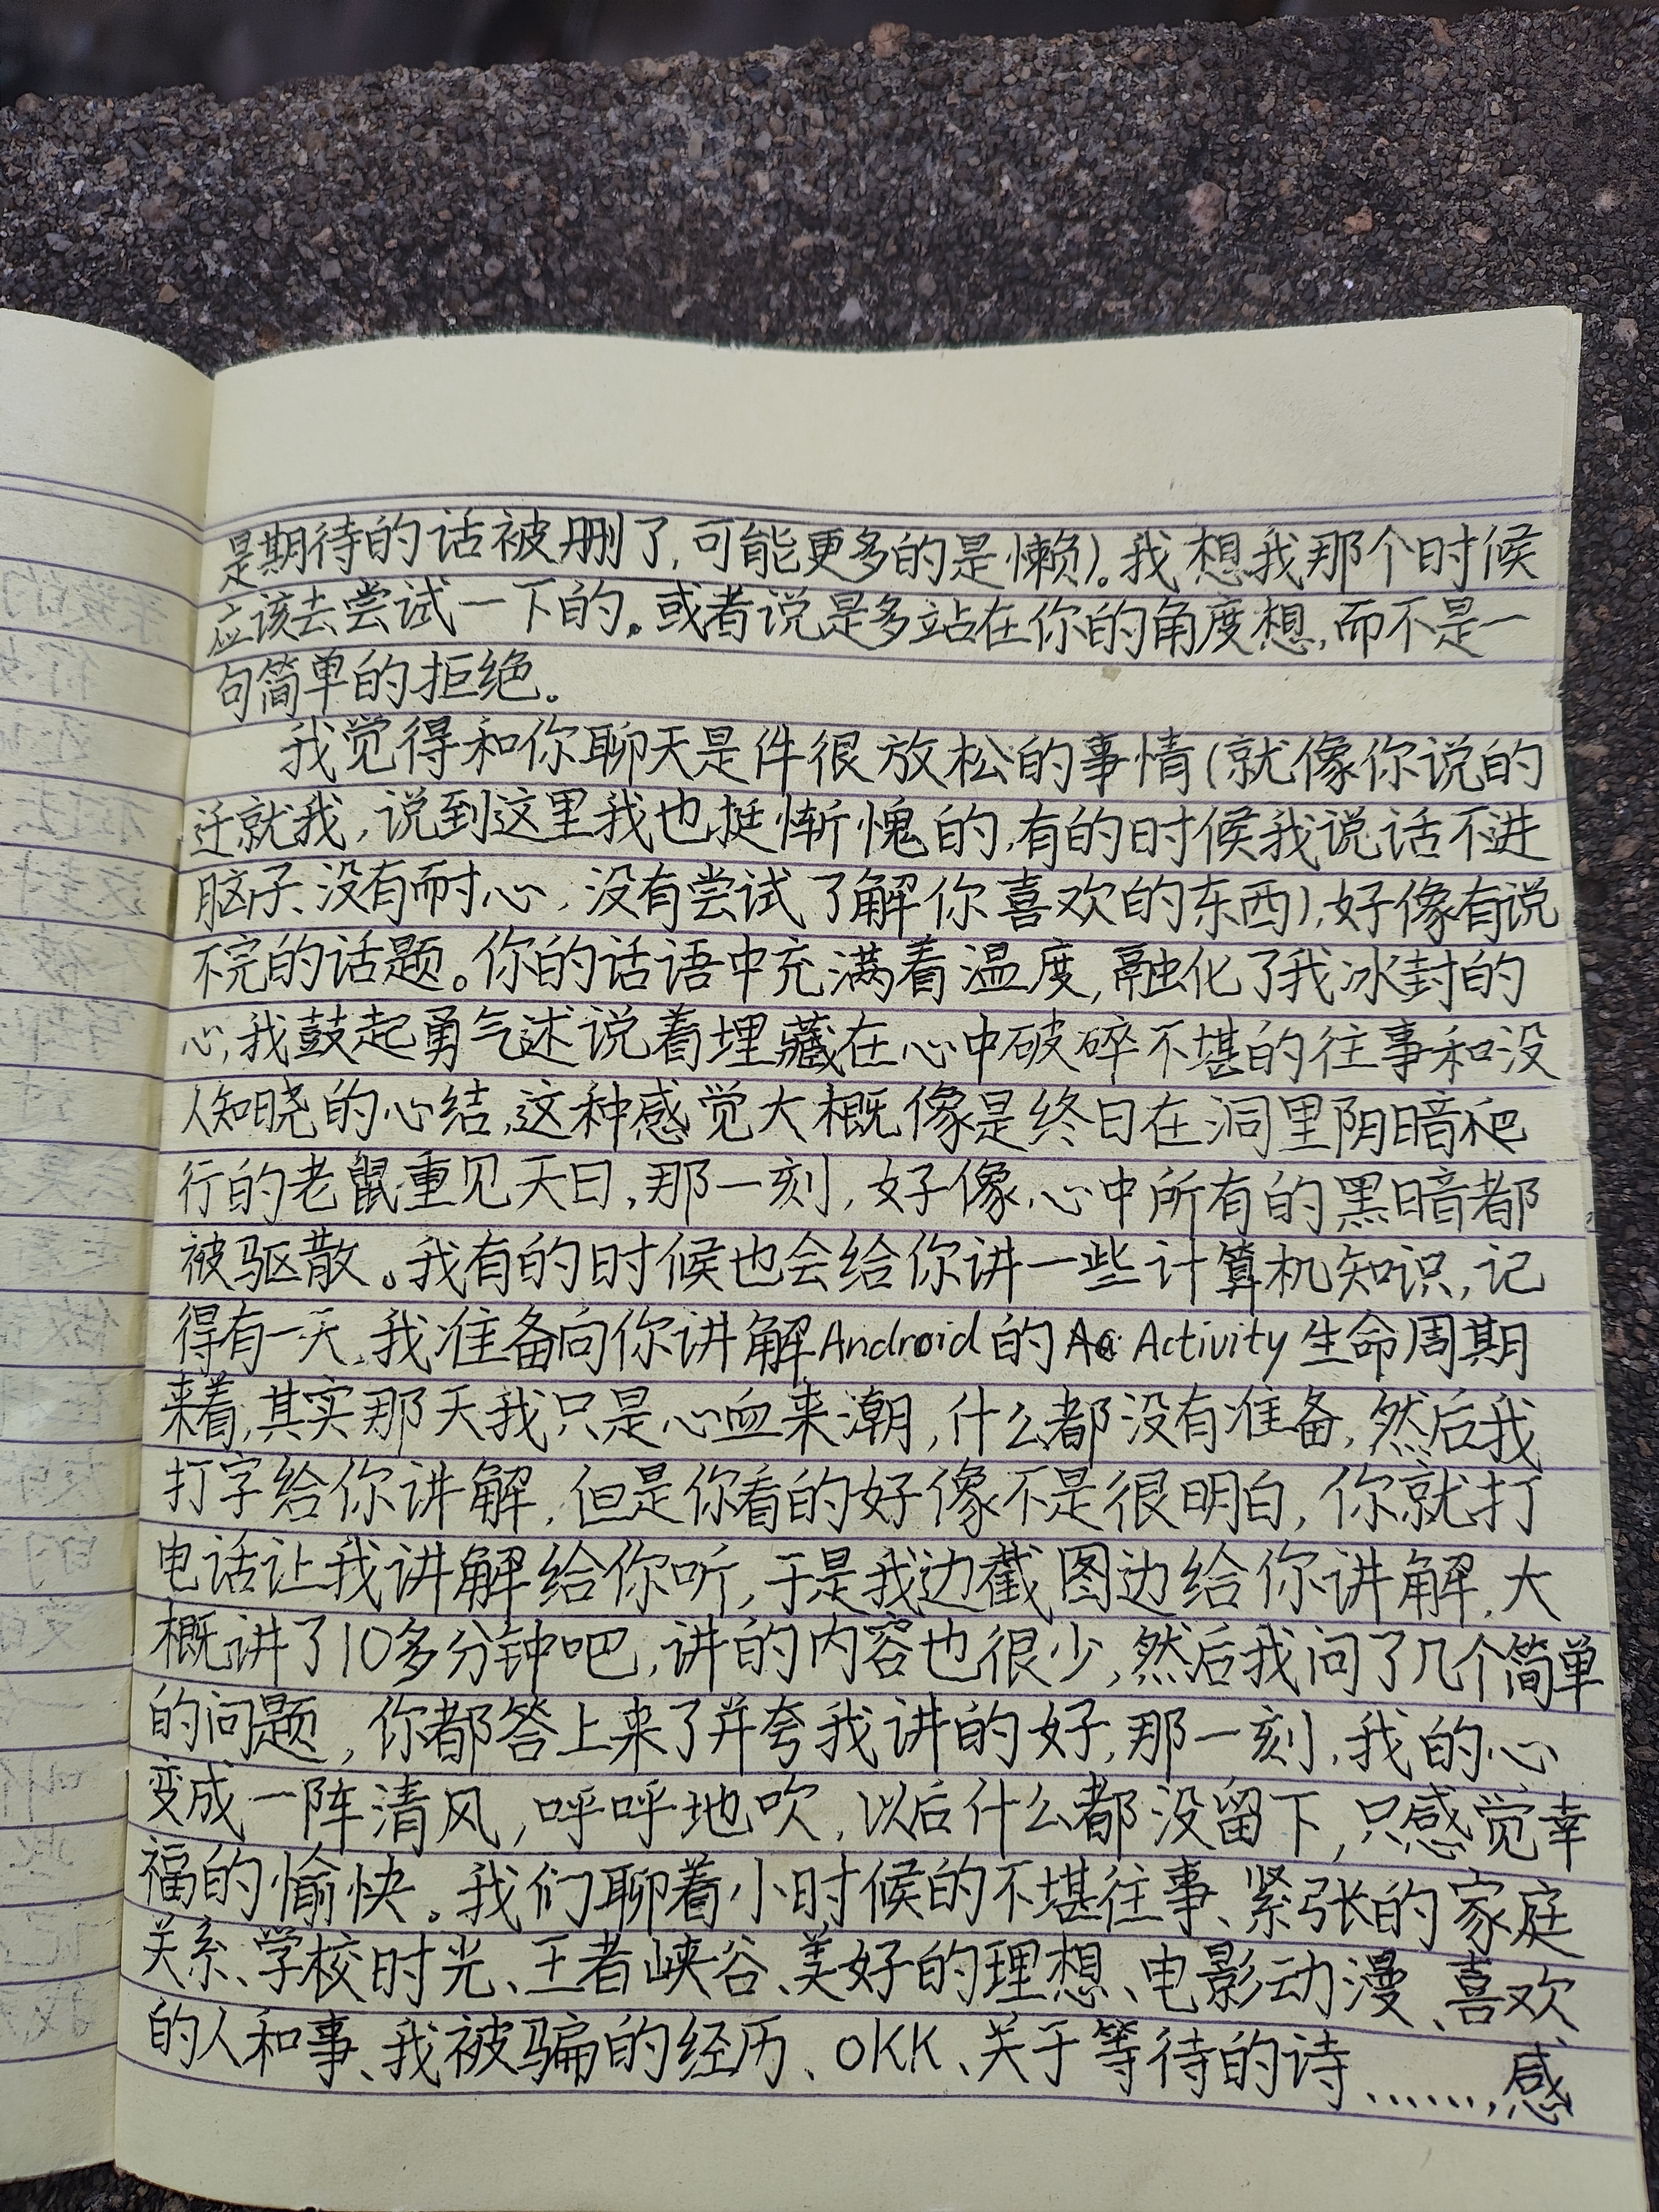 是期待的话被删了,可能更多的是懒)。我想我那个时候
应该去尝试一下的。或者说是多站在你的角度想,而不是一
句简单的拒绝。
我觉得和你聊天是件很放松的事情(就像你说的
迁就我,说到这里我也挺惭愧的,有的时候我说话不进
脑子、没有耐心,没有尝试了解你喜欢的东西),好像有说
不完的话题。你的话语中充满着温度,融化了我冰封的
心,我鼓起勇气述说着埋藏在心中破碎不堪的往事和没
人知晓的心结,这种感觉大概像是终日在洞里阴暗爬
行的老鼠重见天日,那一刻,好像心中所有的黑暗都
被驱散。我有的时候也会给你讲一些计算机知识,记
得有一天,我准备向你讲解Android的 Activity生命周期
来着,其实那天我只是心血来潮,什么都没有准备,然后我
打字给你讲解,但是你看的好像不是很明白,你就打
电话让我讲解给你听,于是我边截图边给你讲解,大
概讲了10多分钟吧,讲的内容也很少,然后我问了几个简单
的问题,你都答上来了并夸我讲的好,那一刻,我的心
变成一阵清风,呼呼地吹,以后什么都没留下,只感觉幸
福的愉快。我们聊着小时候的不堪往事、紧张的家庭
关系、学校时光、王者峡谷、美好的理想、电影动漫、喜欢
的人和事、我被骗的经历、OKK、关于等待的诗.......感